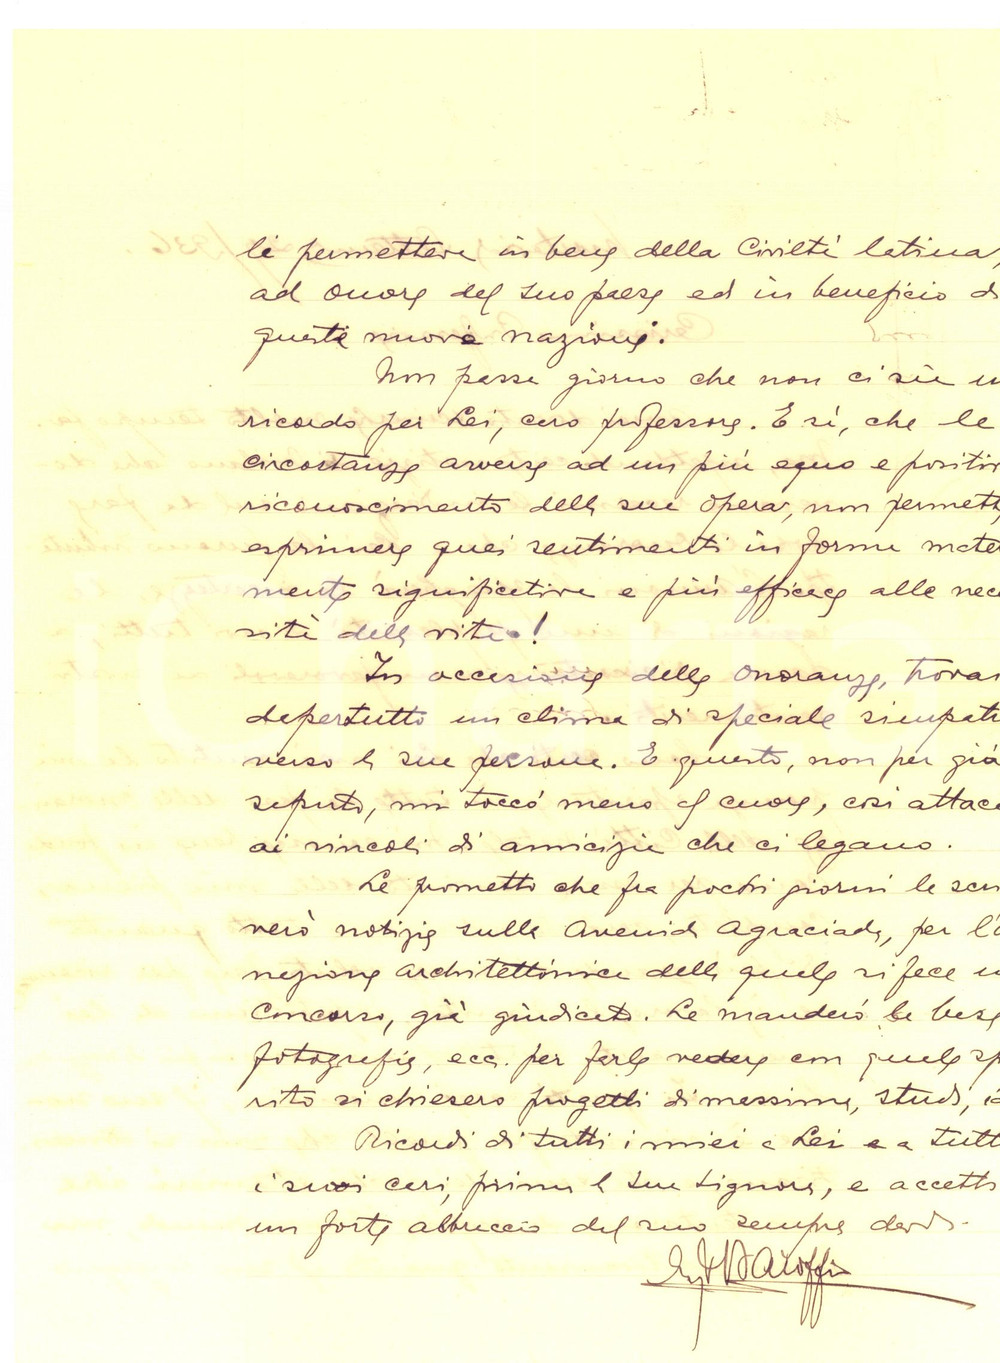 le permettere in bene della Civiltà latina,
ad onore del suo paese ed in beneficio d
queste nuove nazioni.
Non passa giorno che non ci sia u
ricordo per Lei, caro professore. E sì, che le
circostanze avverse ad un più equo e positiv
riconoscimento della sua opera, non permett
esprimere quei sentimenti in forma mate
mente significativa e più efficace alle nece
sità della vita!
In occasione delle onoranze, trova
dapertutto un clima di speciale simpati
verso la sua persona. E questo, non per già
saputo, mi toccò meno il cuore, così attacc
ai vincoli di amicizia che ci legano.
Le prometto che fra pochi giorni le
verò notizie sulla Avenida Agraciada, per l'
nazione architettonica della quale si fece u
Concorso, già giudicato. Le manderò le base
fotografie, ecc. per farle vedere con quale sp
rito si chiesero progetti di massima, studi, i
Ricordi di tutti i miei a Lei e a tutt
i suoi cari, prima la sua Signora, e accetti
un forte abbraccio del suo sempre
Baroffio